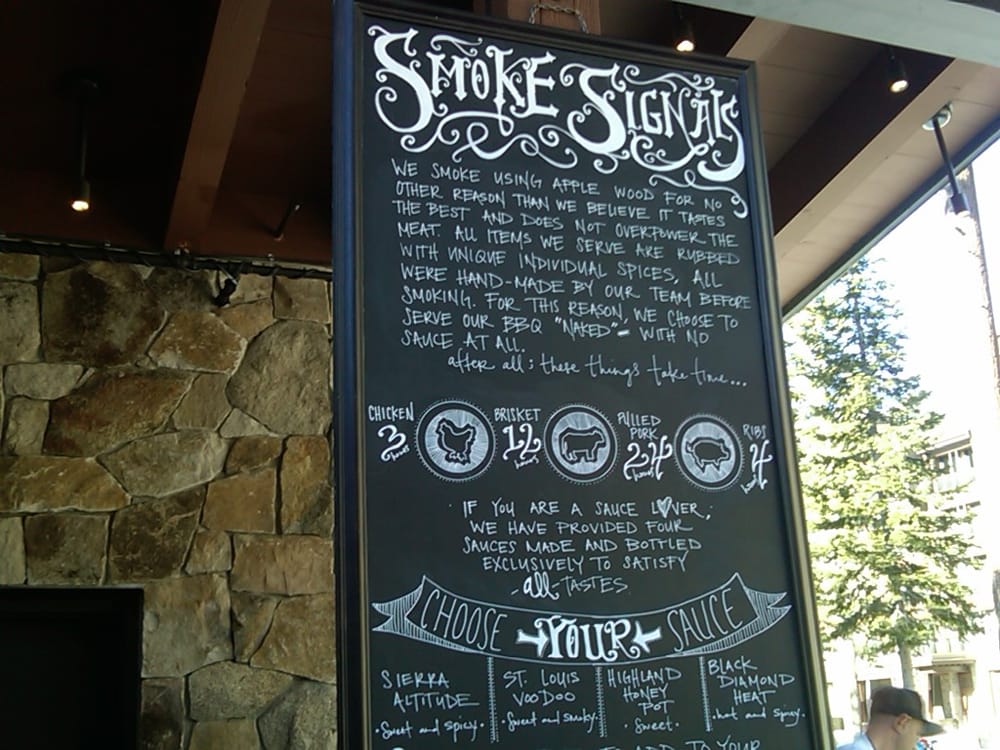 SMOKE SIGNALS
WE SMOKE USING APPLE WOOD FOR NO
OTHER REASON THAN WE BELIEVE IT TASTES
THE BEST AND DOES NOT OVERPOWER THE
MEAT. ALL ITEMS WE SERVE ARE RUBBED
WITH UNIQUE INDIVIDUAL SPICES, ALL
WERE HAND-MADE BY OUR TEAM BEFORE
SMOKING. FOR THIS REASON, WE CHOOSE TO
SERVE OUR BBQ "NAKED"- WITH NO
SAUCE AT ALL.
after all; these things take time...
CHICKEN
3
hours
BRISKET
12
hours
PULLED
PORK
24
hours
RIBS
4
hours
IF YOU ARE A SAUCE LOVER,
WE HAVE PROVIDED FOUR
SAUCES MADE AND BOTTLED
EXCLUSIVELY TO SATISFY
-all-TASTES
CHOOSE YOUR SAUCE
SIERRA
ALTITUDE
·Sweet and spicy·
ST. LOUIS
VOODOO
·Sweet and smoky·
HIGHLAND
HONEY
POT
·Sweet·
BLACK
DIAMOND
HEAT
·hot and spicy·
ADD TO YOUR